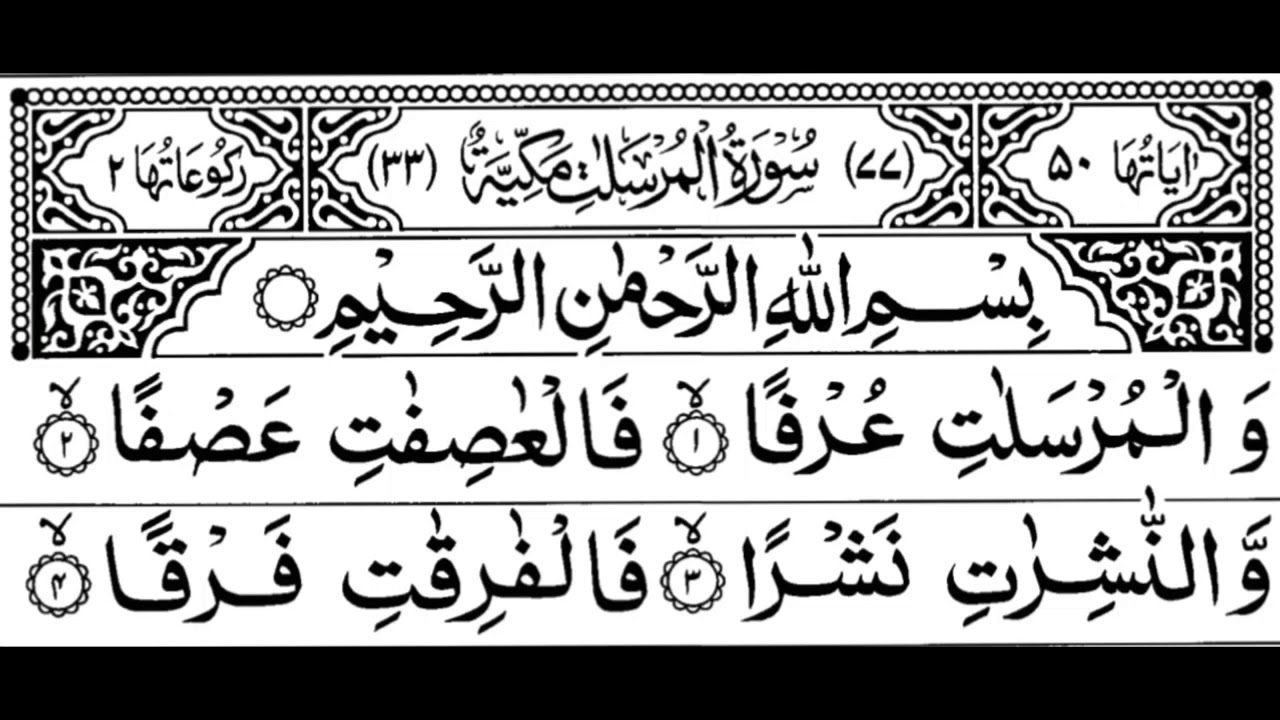 اٰيَاتُهَا ۵۰ (۷۷) سُوْرَةُ الْمُرْسَلٰتِ مَكِّيَّةٌ (۳۳) رُكُوْعَاتُهَا ۲
بِسْمِ اللّٰهِ الرَّحْمٰنِ الرَّحِيْمِ
وَ الْمُرْسَلٰتِ عُرْفًا ۙ ۱ فَالْعٰصِفٰتِ عَصْفًا ۙ ۲
وَّ النّٰشِرٰتِ نَشْرًا ۙ ۳ فَالْفٰرِقٰتِ فَرْقًا ۙ ۴